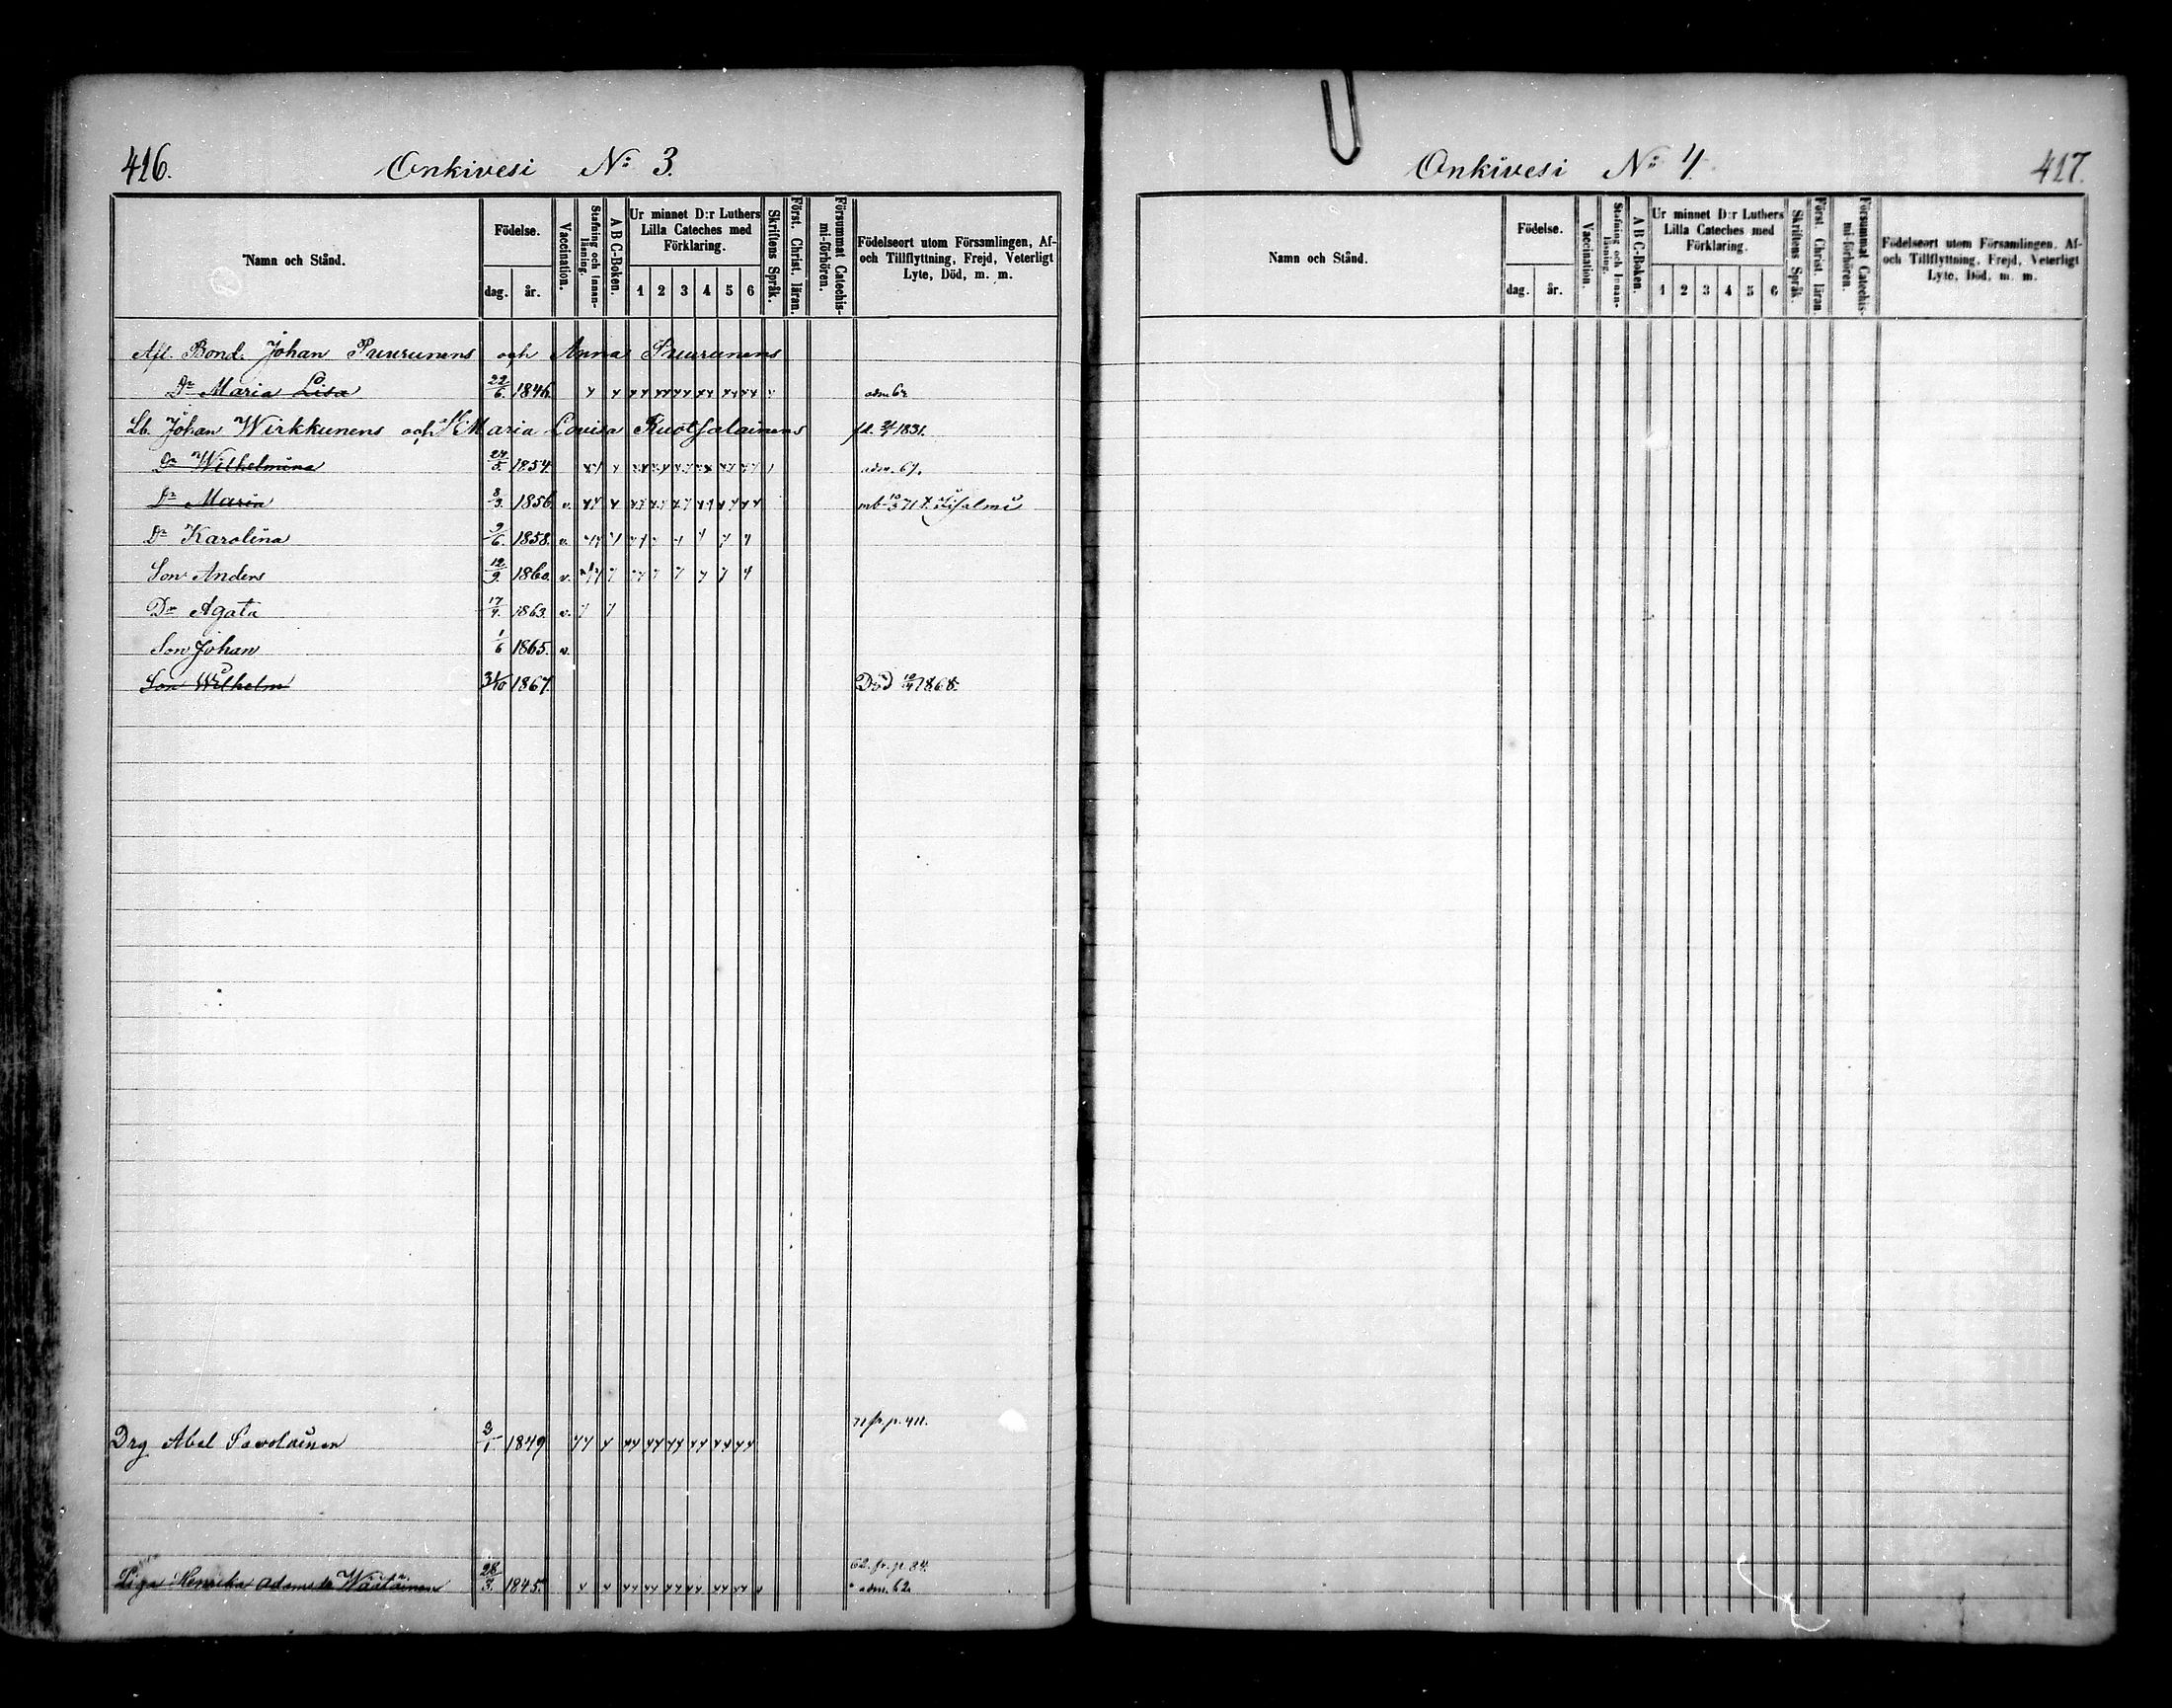 416.
Onkivesi No: 3.
Namn och Stånd.
Födelse.
dag. år.
Vaccination.
Stafning och Innanläsning.
A B C-Boken.
Ur minnet D:r Luthers Lilla Cateches med Förklaring.
1 2 3 4 5 6
Skriftens Språk.
Först. Christ. läran.
Försummat Catechismi-förhören.
Födelseort utom Församlingen, Af- och Tillflyttning, Frejd, Veterligt Lyte, Död, m. m.
Afl. Bond. Johan Puurunens och Anna Puurunens
Dr Maria Lisa 22/6 1846
Lb. Johan Wirkkunens och Maria Lovisa Ruotsalainens 1831.
Dr Wilhelmina 24/5 1854
Dr Maria 8/3 1856 v. Idisalmi
Dr Karolina 9/6 1858. v.
Son Anders 12/9 1860. v.
Dr Agata 17/4 1863. v.
Son Johan 1/6 1865. v.
Son Wilhelm 31/10 1867. Död 1868.
71 fr. p. 411.
Drg Abel Savolainen 3/1 1849
62. fr. p. 84.
Piga Henrika Adamsdr Väätäinen 28/3 1845. adm. 62
Onkivesi No: 4.
417.
Namn och Stånd.
Födelse.
dag. år.
Vaccination.
Stafning och Innanläsning.
A B C-Boken.
Ur minnet D:r Luthers Lilla Cateches med Förklaring.
1 2 3 4 5 6
Skriftens Språk.
Först. Christ. läran.
Försummat Catechismi-förhören.
Födelseort utom Församlingen, Af- och Tillflyttning, Frejd, Veterligt Lyte, Död, m. m.